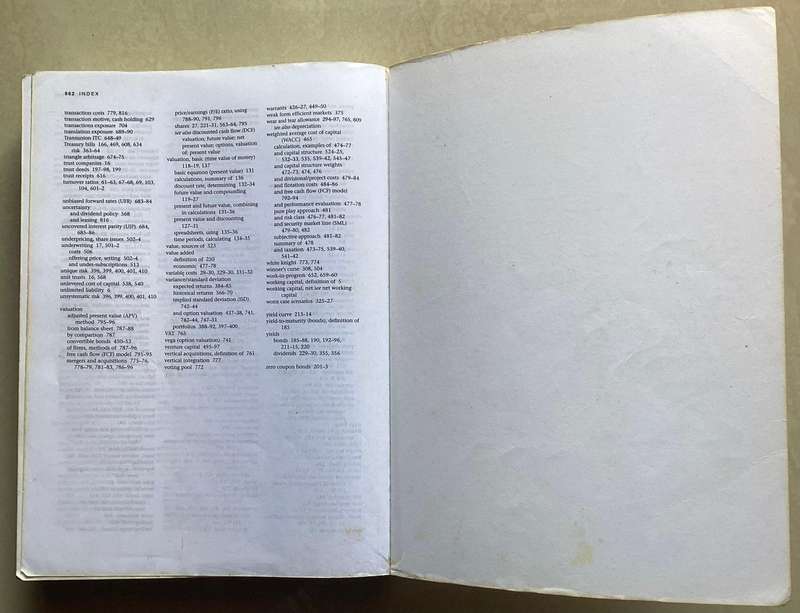 862 INDEX
transaction costs 779, 816
transaction motive, cash holding 629
transactions exposure 704
translation exposure 689–90
Transunion ITC 648–49
Treasury bills 166, 469, 608, 634
risk 363–64
triangle arbitrage 674–75
trust companies 16
trust deeds 197–98, 199
trust receipts 616
turnover ratios 61–63, 67–68, 69, 103,
104, 601–2
unbiased forward rates (UFR) 683–84
uncertainty
and dividend policy 568
and leasing 816
uncovered interest parity (UIP) 684,
685–86
underpricing, share issues 502–4
underwriting 17, 501–2
costs 506
offering price, setting 502–4
and under-subscriptions 513
unique risk 396, 399, 400, 401, 410
unit trusts 16, 568
unlevered cost of capital 538, 540
unlimited liability 6
unsystematic risk 396, 399, 400, 401, 410
valuation
adjusted present value (APV)
method 795–96
from balance sheet 787–88
by comparison 787
convertible bonds 450–53
of firms, methods of 787–96
free cash flow (FCF) model 791–95
mergers and acquisitions 775–76,
778–79, 781–83, 786–96
price/earnings (P/E) ratio, using
788–90, 791, 796
shares 27, 221–31, 563–64, 795
see also discounted cash flow (DCF)
valuation; future value; net
present value; options, valuation
of; present value
valuation, basic (time value of money)
118–19, 137
basic equation (present value) 131
calculations, summary of 136
discount rate, determining 132–34
future value and compounding
119–27
present and future value, combining
in calculations 131–36
present value and discounting
127–31
spreadsheets, using 135–36
time periods, calculating 134–35
value, sources of 323
value added
definition of 250
economic 477–78
variable costs 29–30, 329–30, 331–32
variance/standard deviation
expected returns 384–85
historical returns 366–70
implied standard deviation (ISD)
742–44
and option valuation 437–38, 741,
742–44, 747–51
portfolios 388–92, 397–400.
VAT 763
vega (option valuation) 741
venture capital 495–97
vertical acquisitions, definition of 761
vertical integration 777
voting pool 772
warrants 426–27, 449–50
weak form efficient markets 375
wear and tear allowance 294–97, 765, 809
see also depreciation
weighted average cost of capital
(WACC) 465
calculation, examples of 474–77
and capital structure 524–25,
532–33, 535, 539–42, 545–47
and capital structure weights
472–73, 474, 476
and divisional/project costs 479–84
and flotation costs 484–86
and free cash flow (FCF) model
792–94
and performance evaluation 477–78
pure play approach 481
and risk class 476–77, 481–82
and security market line (SML)
479–80, 482
subjective approach 481–82
summary of 478
and taxation 473–75, 539–40,
541–42
white knight 773, 774
winner's curse 308, 504
work-in-progress 652, 659–60
working capital, definition of 5
working capital, net see net working
capital
worst case scenarios 325–27
yield curve 213–14
yield-to-maturity (bonds), definition of
185
yields
bonds 185–88, 190, 192–96,
211–15, 220
dividends 229–30, 355, 356
zero coupon bonds 201–3